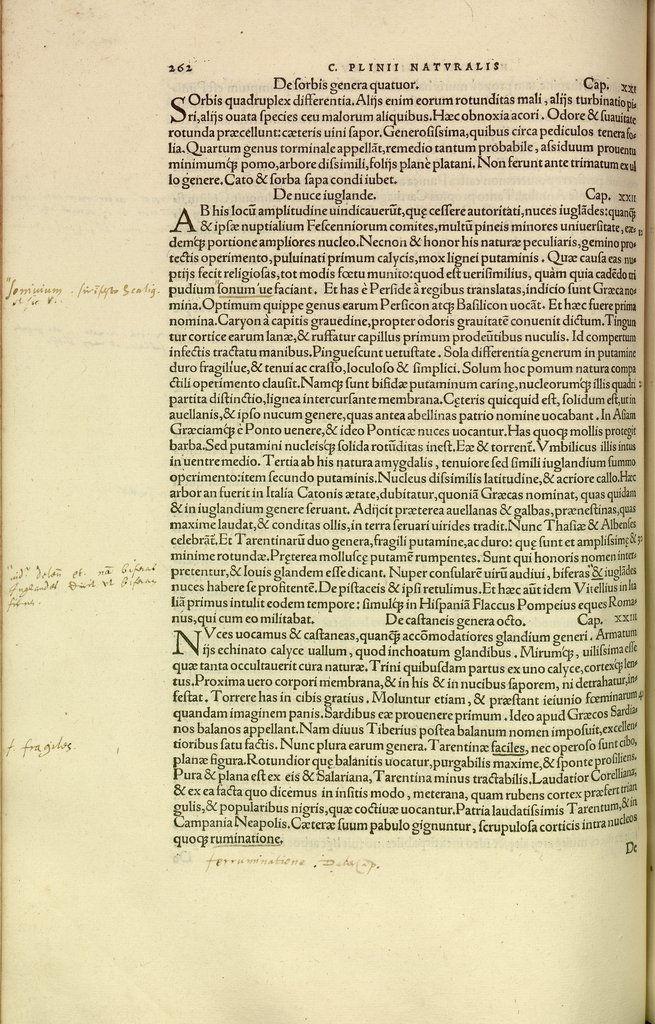 262 C. PLINII NATVRALIS
De sorbis genera quatuor. Cap. XXI
SOrbis quadruplex differentia. Alijs enim eorum rotunditas mali, alijs turbinatio pi
ri, alijs ouata species ceu malorum aliquibus. Hæc obnoxia acori. Odore & suauitate
rotunda præcellunt: cæteris uini sapor. Generosissima, quibus circa pediculos tenera fo-
lia. Quartum genus torminale appellāt, remedio tantum probabile, assiduum prouentu
minimumq; pomo, arbore dissimili, folijs planè platani. Non ferunt ante trimatum ex ul
lo genere. Cato & sorba sapa condi iubet.
De nuce iuglande. Cap. XXII
AB his locū amplitudine uindicauerūt, quę cessere autoritati, nuces iuglādes: quanq;
& ipsæ nuptialium Fescenniorum comites, multū pineis minores uniuersitate, eæ-
demq; portione ampliores nucleo. Necnon & honor his naturæ peculiaris, gemino pro-
tectis operimento, puluinati primum calycis, mox lignei putaminis. Quæ causa eas nu-
ptijs fecit religiosas, tot modis fœtu munito: quod est uerisimilius, quàm quia cadēdo tri
pudium sonum'ue faciant. Et has è Perside à regibus translatas, indicio sunt Græca no-
mina. Optimum quippe genus earum Persicon atq; Basilicon uocāt. Et hæc fuere prima
nomina. Caryon à capitis grauedine, propter odoris grauitatē conuenit dictum. Tingun
tur cortice earum lanæ, & ruffatur capillus primum prodeūtibus nuculis. Id compertum
infectis tractatu manibus. Pinguescunt uetustate. Sola differentia generum in putamine
duro fragili'ue, & tenui ac crasso, loculoso & simplici. Solum hoc pomum natura compa
ctili operimento clausit. Namq; sunt bifidæ putaminum carinę, nucleorumq; illis quadri
partita distinctio, lignea intercursante membrana. Cęteris quicquid est, solidum est, ut in
auellanis, & ipso nucum genere, quas antea abellinas patrio nomine uocabant. In Asiam
Græciamq; è Ponto uenere, & ideo Ponticæ nuces uocantur. Has quoq; mollis protegit
barba. Sed putamini nucleisq; solida rotūditas inest. Eæ & torrent. Vmbilicus illis intus
in uentre medio. Tertia ab his natura amygdalis, tenuiore sed simili iuglandium summo
operimento: item secundo putaminis. Nucleus dissimilis latitudine, & acriore callo. Hæc
arbor an fuerit in Italia Catonis ætate, dubitatur, quoniā Græcas nominat, quas quidam
& in iuglandium genere seruant. Adijcit præterea auellanas & galbas, prænestinas, quas
maxime laudat, & conditas ollis, in terra seruari uirides tradit. Nunc Thasiæ & Albenses
celebrāt. Et Tarentinarū duo genera, fragili putamine, ac duro: quę sunt et amplissimę &
minime rotundæ. Pręterea molluscę putamē rumpentes. Sunt qui honoris nomen inter-
pretentur, & Iouis glandem esse dicant. Nuper consularē uirū audiui, biferas & iuglādes
nuces habere se profitentē. De pistaceis & ipsi retulimus. Et hæc aūt idem Vitellius in Ita
liā primus intulit eodem tempore: simulq; in Hispaniā Flaccus Pompeius eques Roma-
nus, qui cum eo militabat. De castaneis genera octo. Cap. XXIII
NVces uocamus & castaneas, quanq; accōmodatiores glandium generi. Armatum
ijs echinato calyce uallum, quod inchoatum glandibus. Mirumq;, uilissima esse
quæ tanta occultauerit cura naturæ. Trini quibusdam partus ex uno calyce, cortexq; len
tus. Proxima uero corpori membrana, & in his & in nucibus saporem, ni detrahatur, in-
festat. Torrere has in cibis gratius. Moluntur etiam, & præstant ieiunio fœminarum
quandam imaginem panis. Sardibus eæ prouenere primum. Ideo apud Græcos Sardia-
nos balanos appellant. Nam diuus Tiberius postea balanum nomen imposuit, excellen-
tioribus satu factis. Nunc plura earum genera. Tarentinæ faciles, nec operoso sunt cibo,
planæ figura. Rotundior quę balanitis uocatur, purgabilis maxime, & sponte prosiliens.
Pura & plana est ex eis & Salariana, Tarentina minus tractabilis. Laudatior Corelliana,
& ex ea facta quo dicemus in insitis modo, meterana, quam rubens cortex præfert trian
gulis, & popularibus nigris, quæ coctiuæ uocantur. Patria laudatissimis Tarentum, & in
Campania Neapolis. Cæteræ suum pabulo gignuntur, scrupulosa corticis intra nucleos
quoq; ruminatione.
De
f. fragiles
ferruminatione